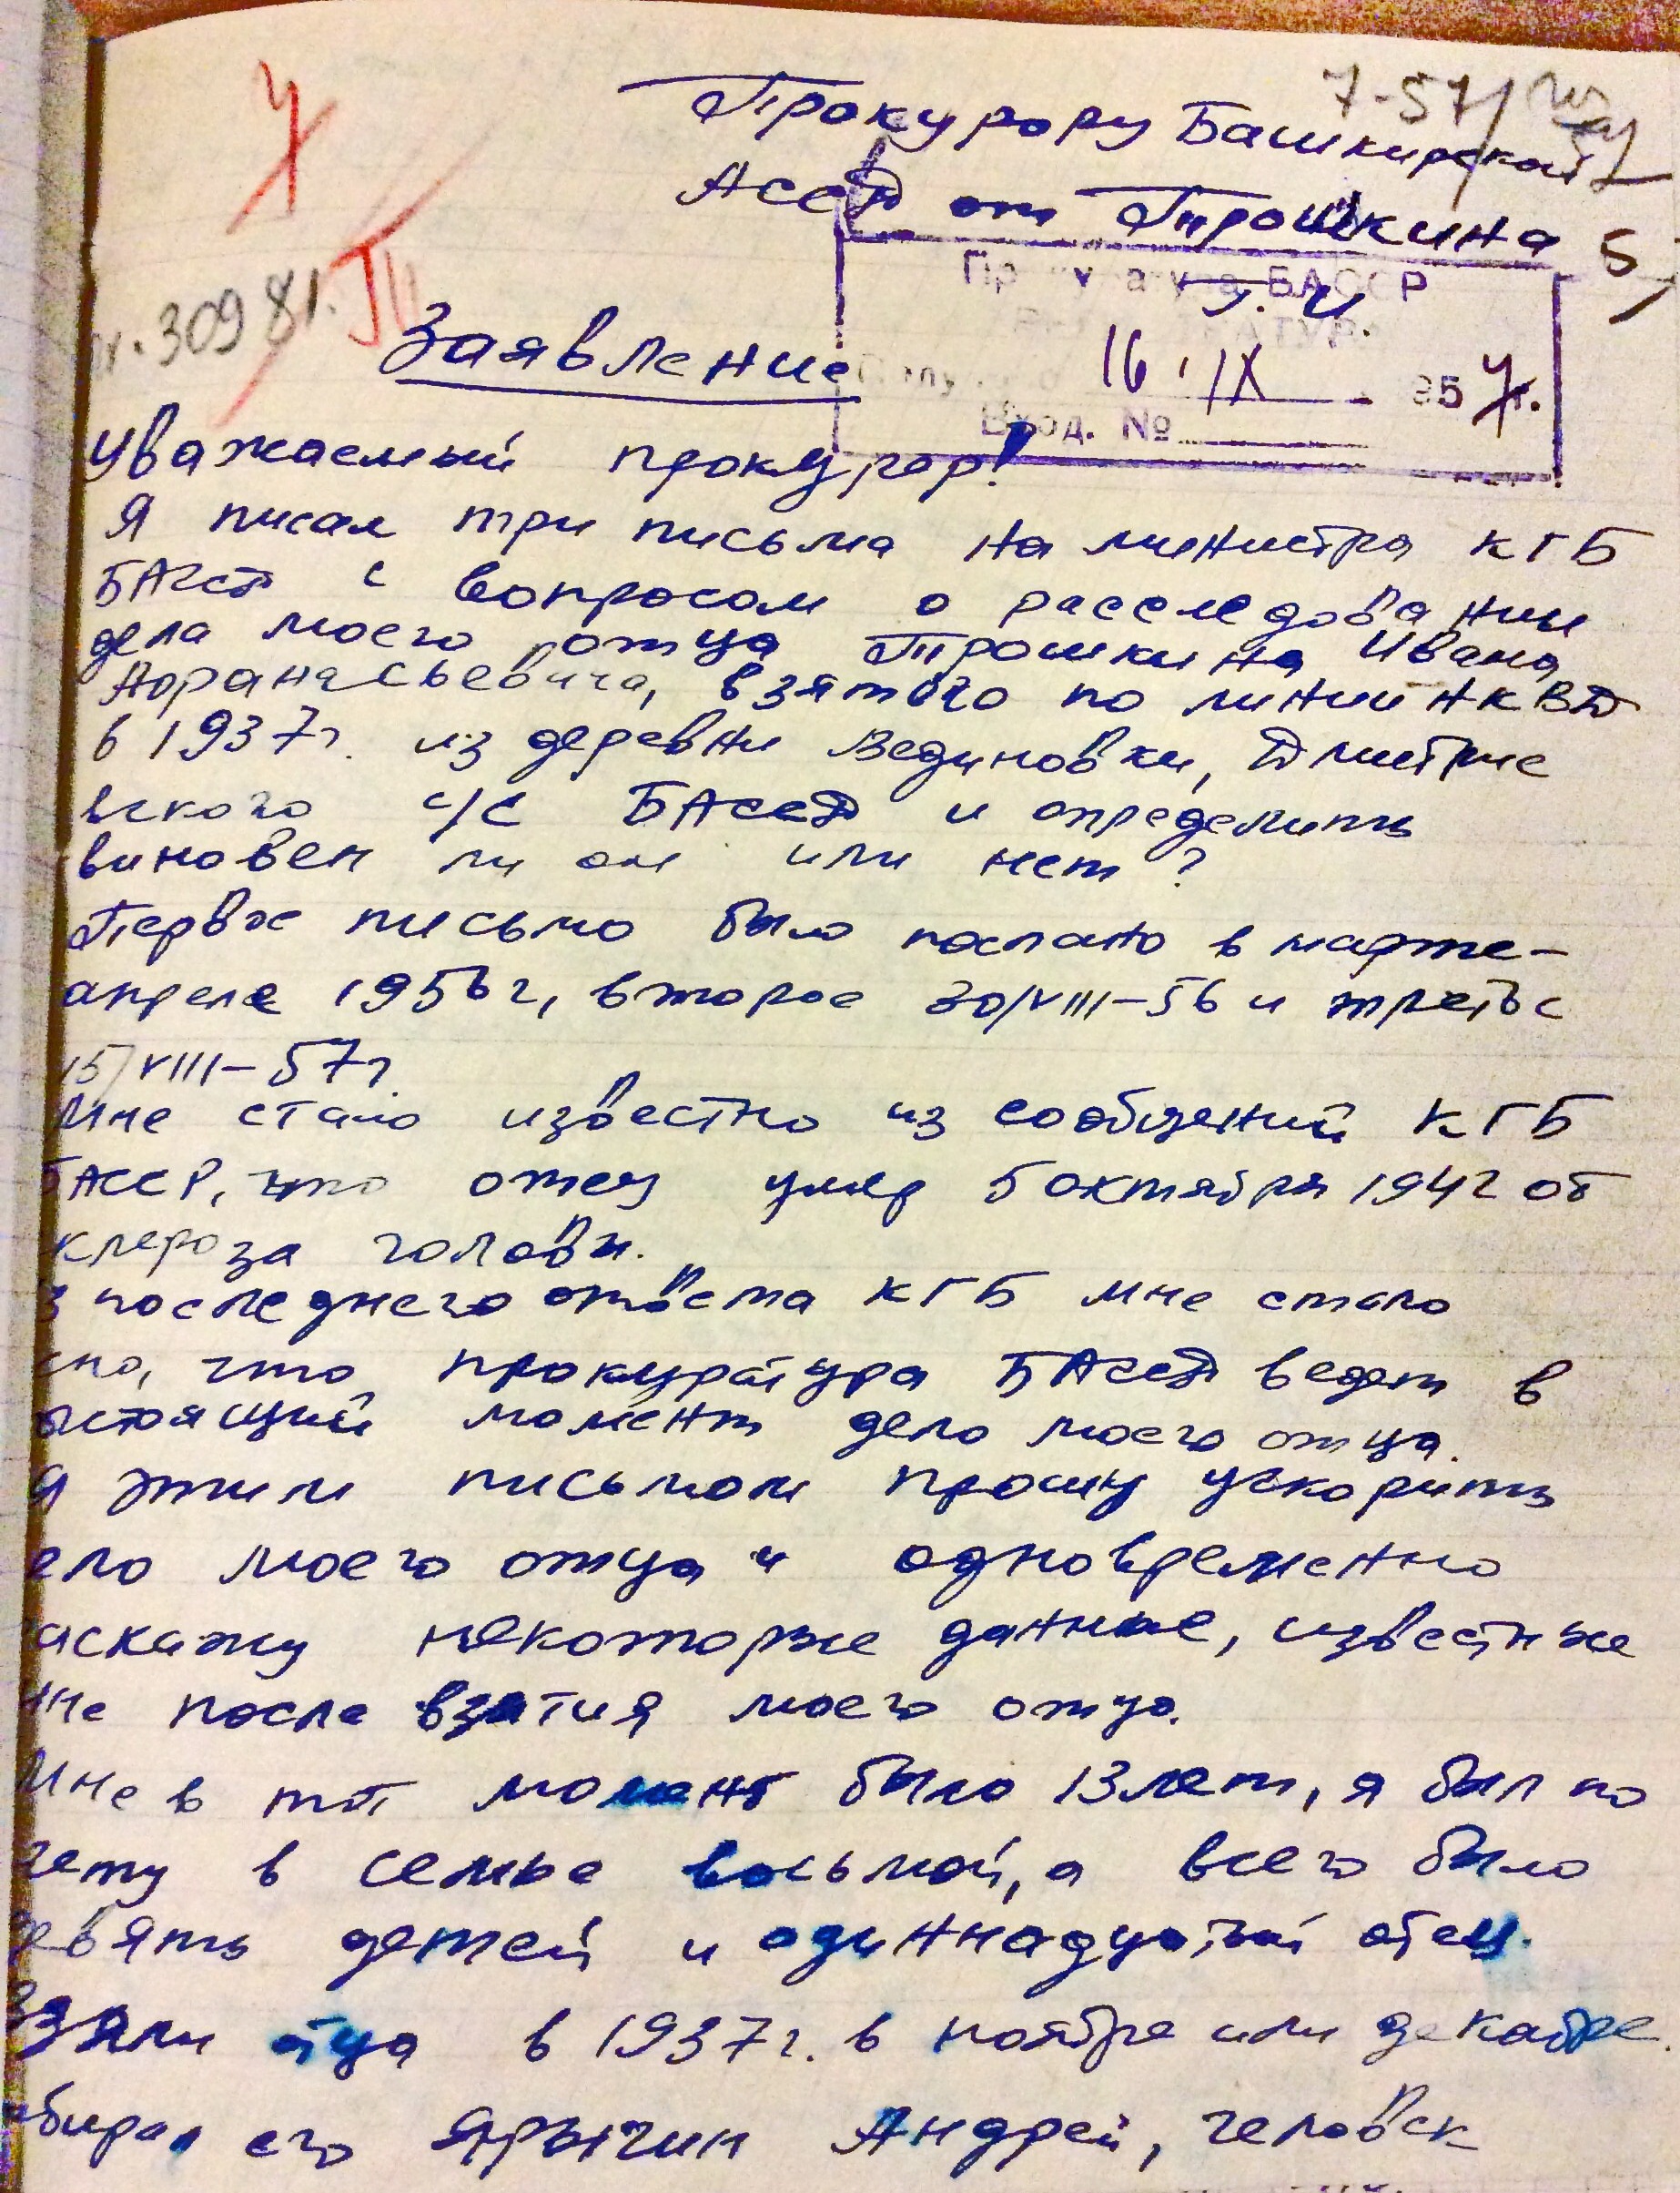 7-57
Прокурору Башкирской
АССР от Трошкина
Прокуратура БАССР
Г. И.
16 IX 1957 г.
Вход. №
309 81.
Заявление
Уважаемый прокурор!
Я писал три письма на министра КГБ
БАССР с вопросом о расследовании
дела моего отца Трошкина Ивана
Афанасьевича, взятого по линии НКВД
в 1937г. из деревни Вединовки, Дмитрие
вского с/с БАССР и определить
виновен ли он или нет?
Первое письмо было послано в марте-
апреле 1956г, второе 30/VIII-56 и третье
15/VIII-57г
Мне стало известно из сообщений КГБ
БАССР, что отец умер 5 октября 1942 от
клероза головы.
з последнего ответа КГБ мне стало
сно, что прокуратура БАССР ведет в
астоящий момент дело моего отца.
Я этим письмом прошу ускорить
ело моего отца и одновременно
аскажу некоторые данные, известные
мне после взятия моего отца.
Мне в тот момент было 13 лет, я был по
чету в семье восьмой, а всего было
девять детей и одиннадцатый отец.
Взяли отца в 1937г. в ноябре или декабре.
абирал его Ярыгин Андрей, человек